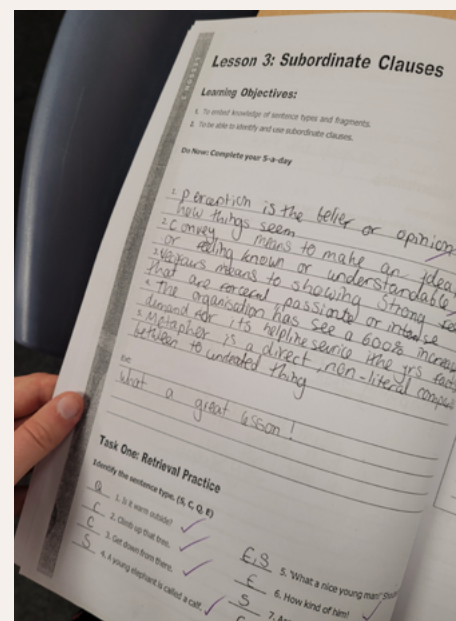 LESSON 3
Lesson 3: Subordinate Clauses
Learning Objectives:
1. To embed knowledge of sentence types and fragments.
2. To be able to identify and use subordinate clauses.
Do Now: Complete your 5-a-day
1. perception is the belief or opinion
how things seem
2. Convey means to make an idea,
or feeling known or understandable
3. means to showing strong
that are forceful, passionate or intense
4. The organisation has see a 600% increase
demand for its helpline service
5. Metapher is a direct, non-literal
between to unrelated thing
what a great lesson!
Task One: Retrieval Practice
Identify the sentence type. (S, C, Q, E)
Q 1. Is it warm outside?
C 2. Climb up that tree.
C 3. Get down from there.
S 4. A young elephant is called a calf.
E, S 5. "What a nice young man!"
E 6. How kind of him!
S 7.